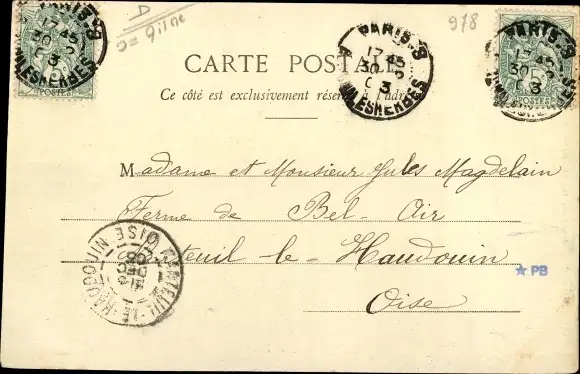 D
o = gilne
978
PARIS.8
17 45
30
3
MALESHERBES
PARIS.8
17 45
30
3
MALESHERBES
PARIS.8
17 45
30
3
POSTES
5
POSTES
CARTE POSTALE
Ce côté est exclusivement réservé à l'adresse
Madame et Monsieur Jules Magdelain
Ferme de Bel-Air
Nanteuil-le-Haudouin
Oise
NANTEUIL-LE-HAUDOUIN
OISE
DEC
03
★ PB